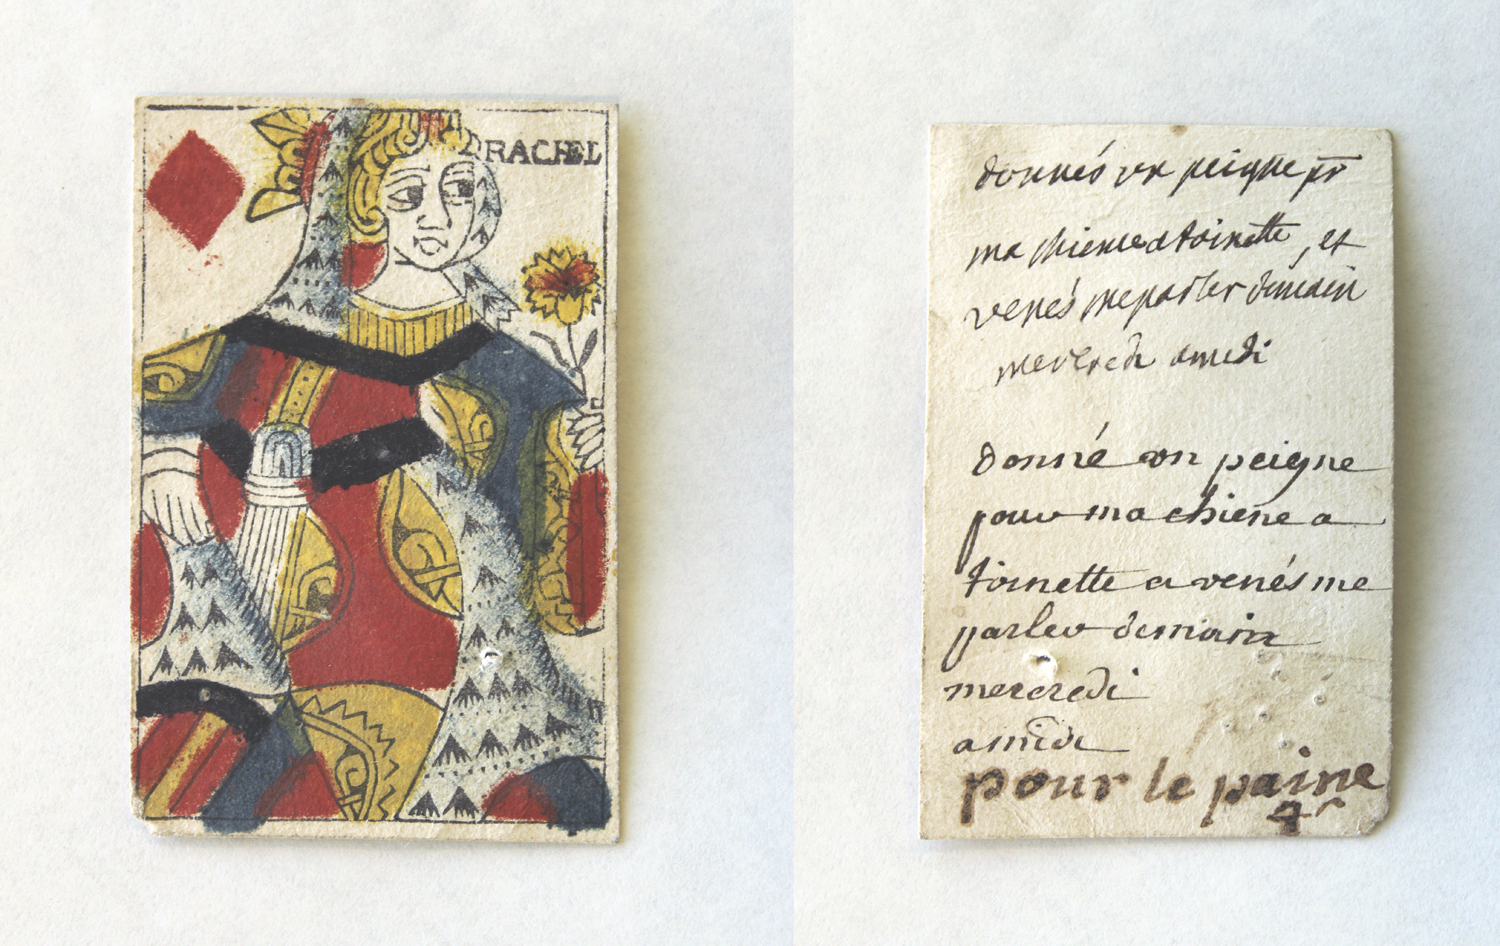 RACHEL
donnés un peigne pr
ma chienne a toinette, et
venés me parler demain
mercredi a midi
donné un peigne
pour ma chiene a
toinette a venés me
parler demain
mercredi
a midi
pour le paine
4ˢ